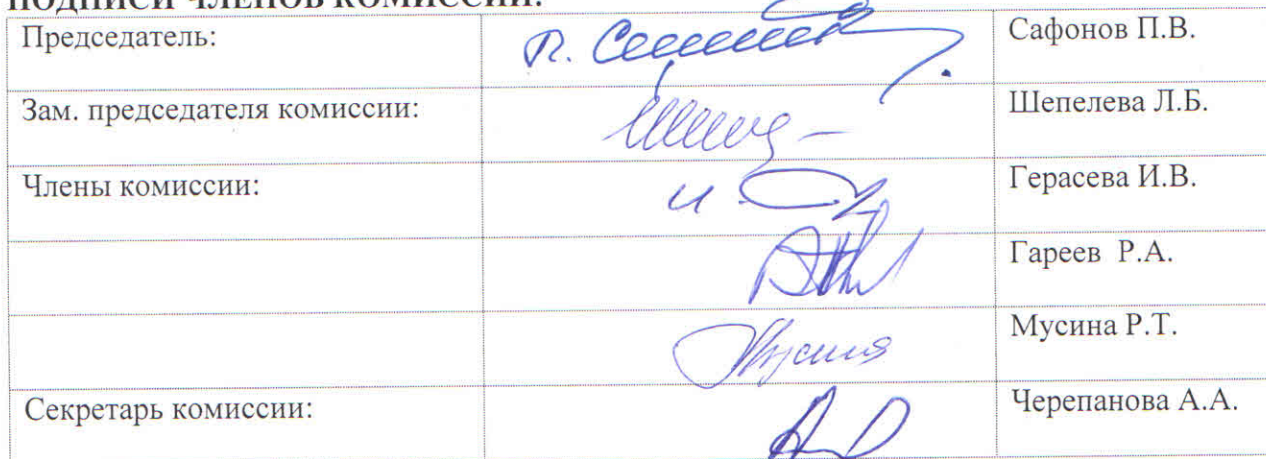 ПОДПИСИ ЧЛЕНОВ КОМИССИИ:
Председатель: Сафонов П.В.
Зам. председателя комиссии: Шепелева Л.Б.
Члены комиссии: Герасева И.В.
Гареев Р.А.
Мусина Р.Т.
Секретарь комиссии: Черепанова А.А.